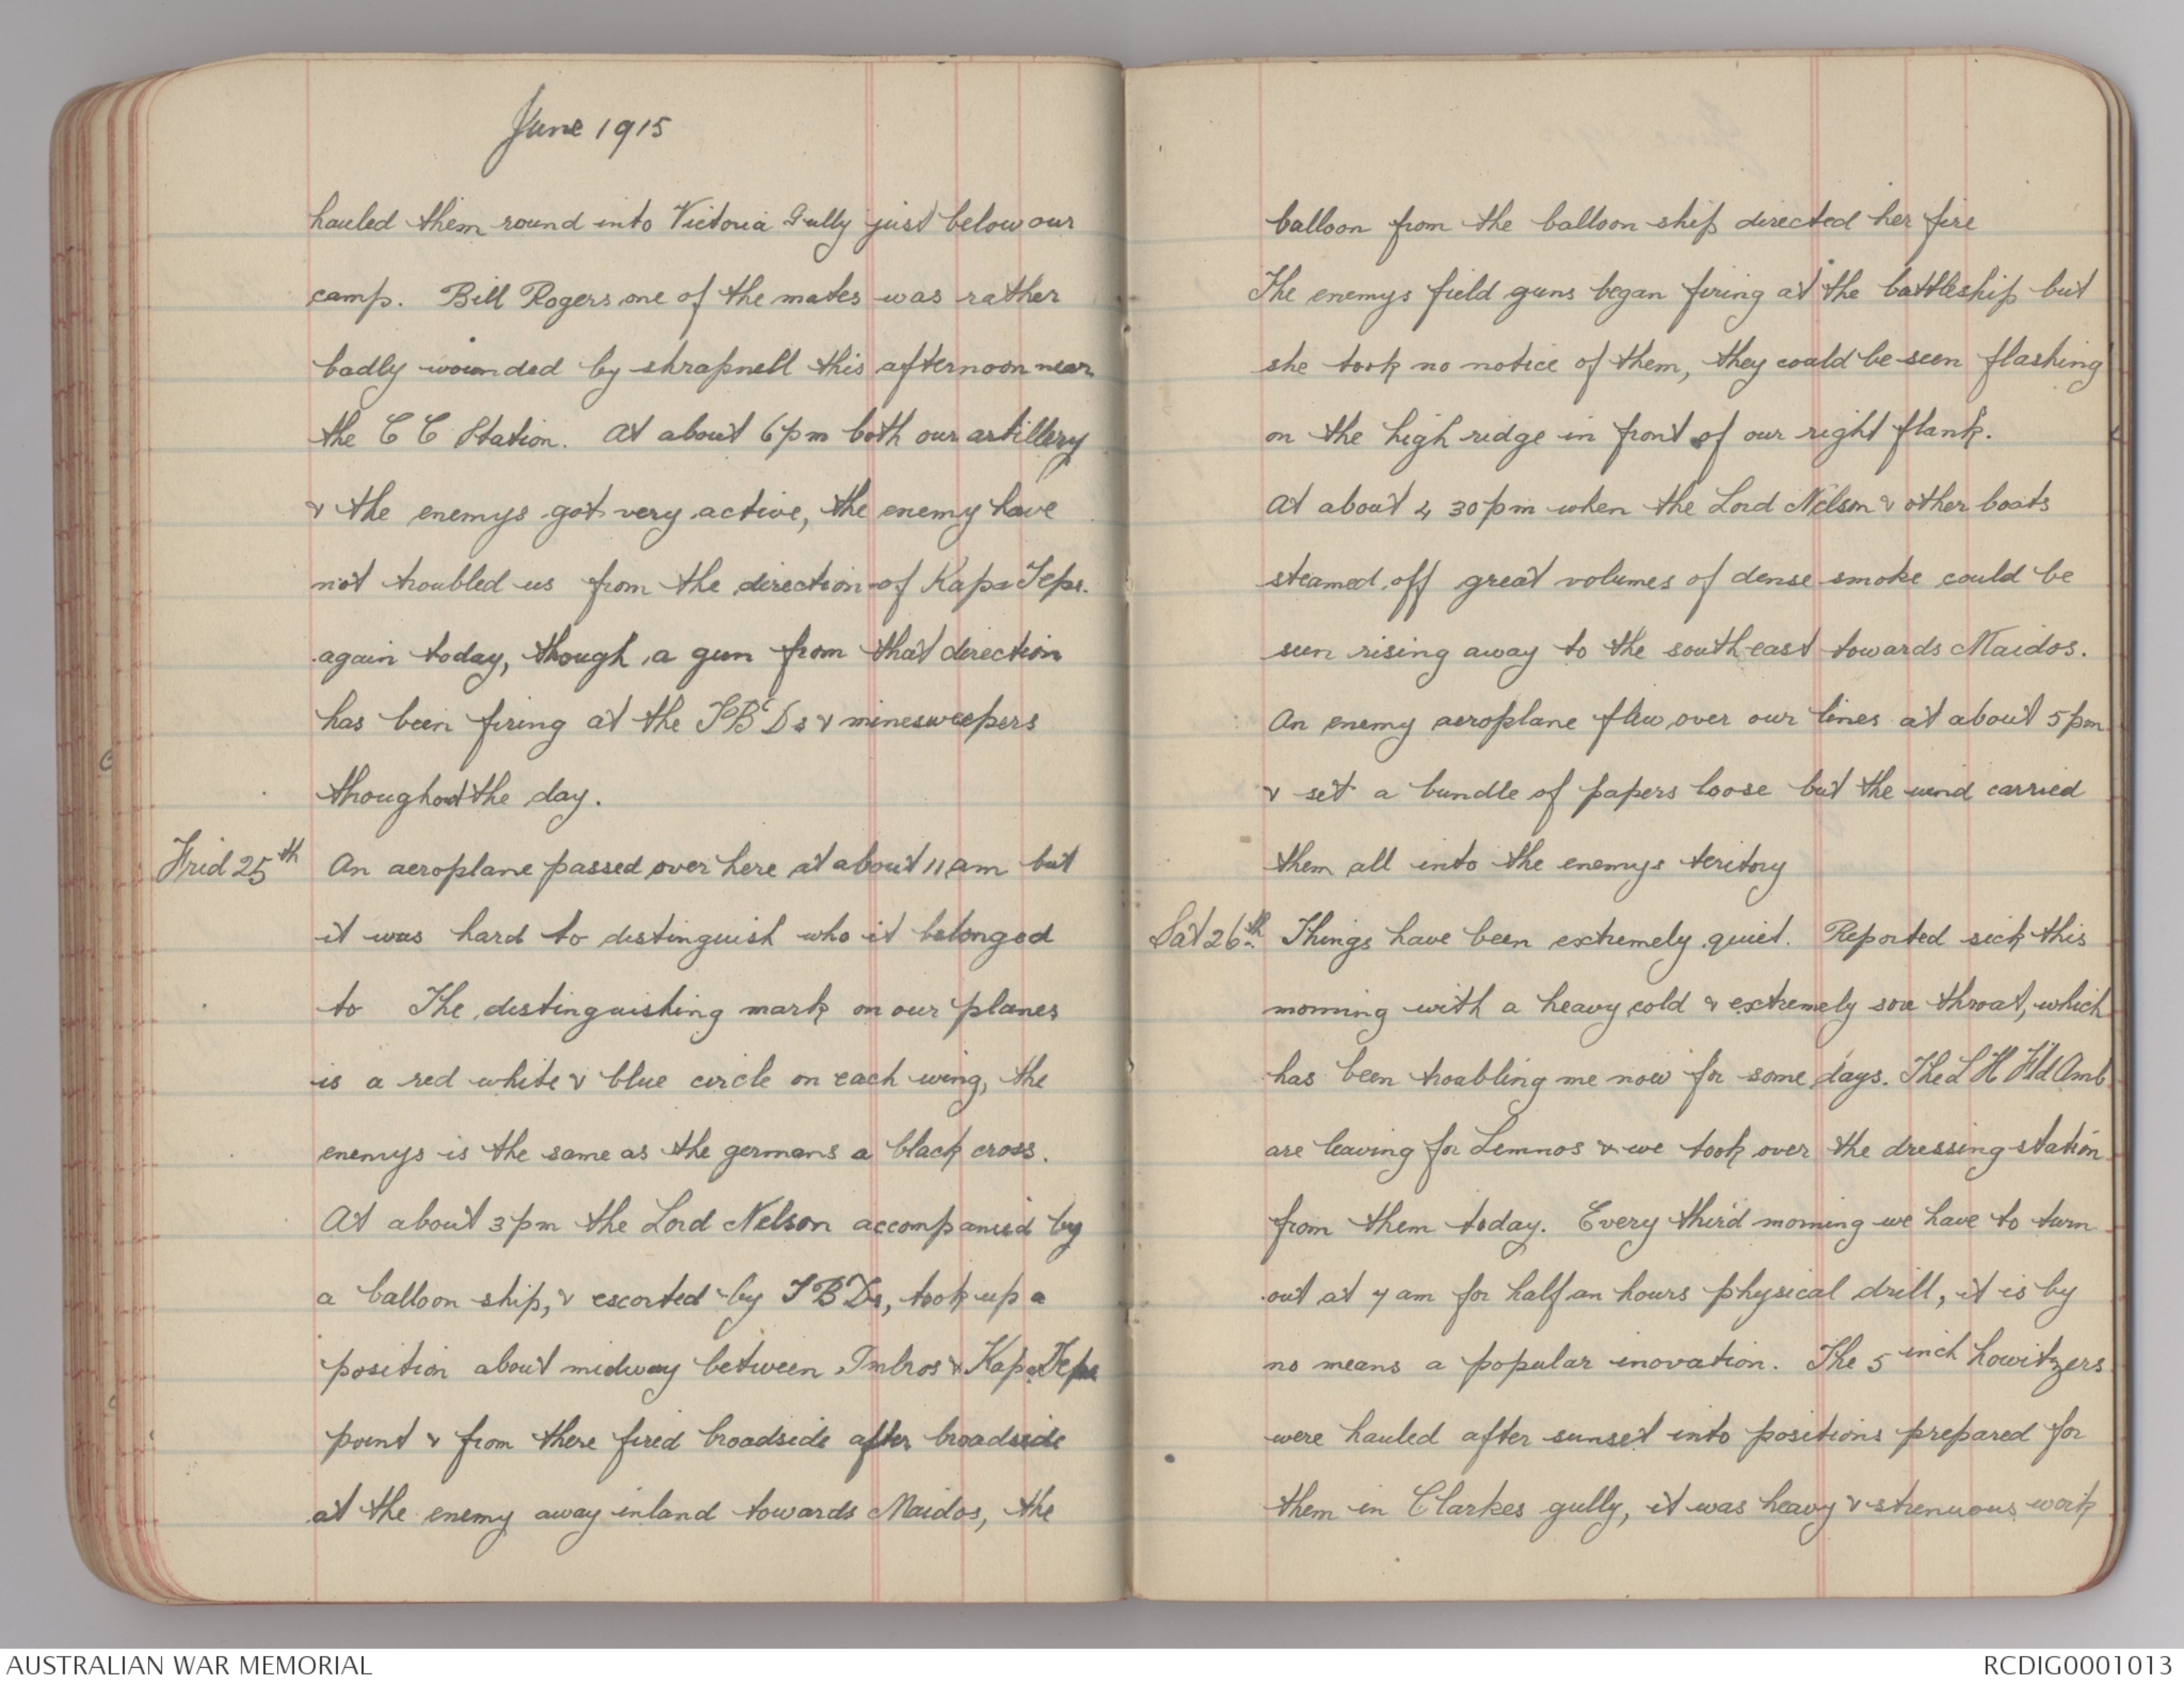 June 1915
hauled them round into Victoria Gully just below our
camp. Bill Rogers one of the mates was rather
badly wounded by shrapnell this afternoon near
the C C Station. At about 6 pm both our artillery
& the enemys got very active, the enemy have
not troubled us from the direction of Kapa Tepe.
again today, though a gun from that direction
has been firing at the TBDs & minesweepers
thoughout the day.
Frid 25th An aeroplane passed over here at about 11 am but
it was hard to distinguish who it belonged
to The distinguishing mark on our planes
is a red white & blue circle on each wing, the
enemys is the same as the germans a black cross.
At about 3 pm the Lord Nelson accompanied by
a balloon ship, & escorted by TBDs, took up a
position about midway between Imbros & Kapa Tepe
point & from there fired broadside after broadside
at the enemy away inland towards Maidos, the
balloon from the balloon ship directed her fire
The enemys field guns began firing at the battleship but
she took no notice of them, they could be seen flashing
on the high ridge in front of our right flank.
At about 4 30 pm when the Lord Nelson & other boats
steamed off great volumes of dense smoke could be
seen rising away to the south east towards Maidos.
An enemy aeroplane flew over our lines at about 5 pm
& set a bundle of papers loose but the wind carried
them all into the enemys teritory
Sat 26th. Things have been extremely quiet. Reported sick this
morning with a heavy cold & extremely sore throat, which
has been troubling me now for some days. The L H Fld Amb
are leaving for Lemnos & we took over the dressing station
from them today. Every third morning we have to turn
out at 7 am for half an hours physical drill, it is by
no means a popular inovation. The 5 inch howitzers
were hauled after sunset into positions prepared for
them in Clarkes gully, it was heavy & strenuous work
AUSTRALIAN WAR MEMORIAL
RCDIG0001013